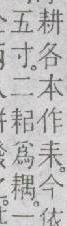 耕各本作耒今依
五寸。二耜爲耦。一